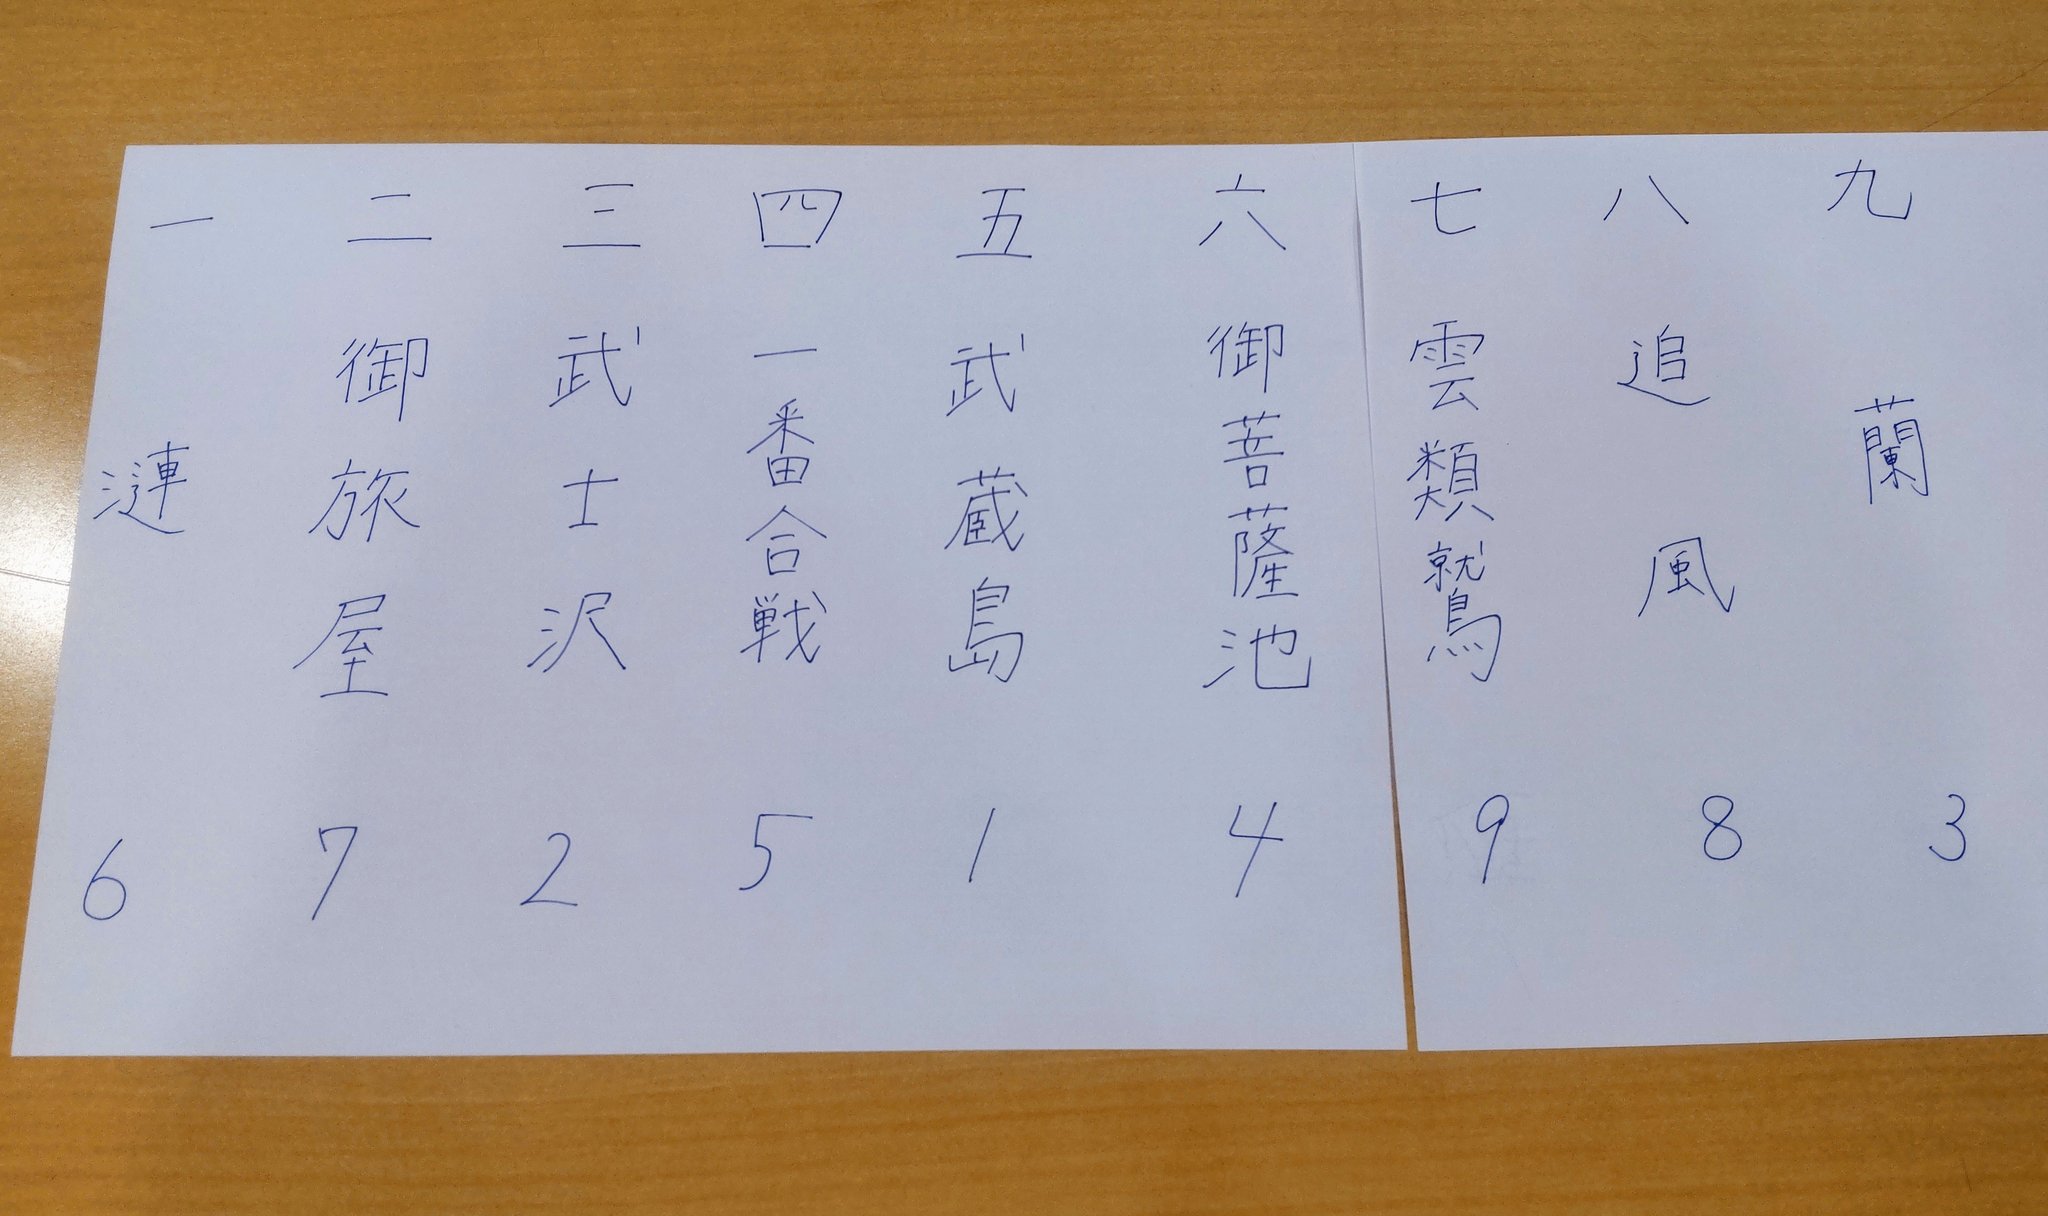 一 漣 6
二 御旅屋 7
三 武士沢 2
四 一番合戦 5
五 武蔵島 1
六 御菩薩池 4
七 雲類鷲 9
八 追風 8
九 蘭 3